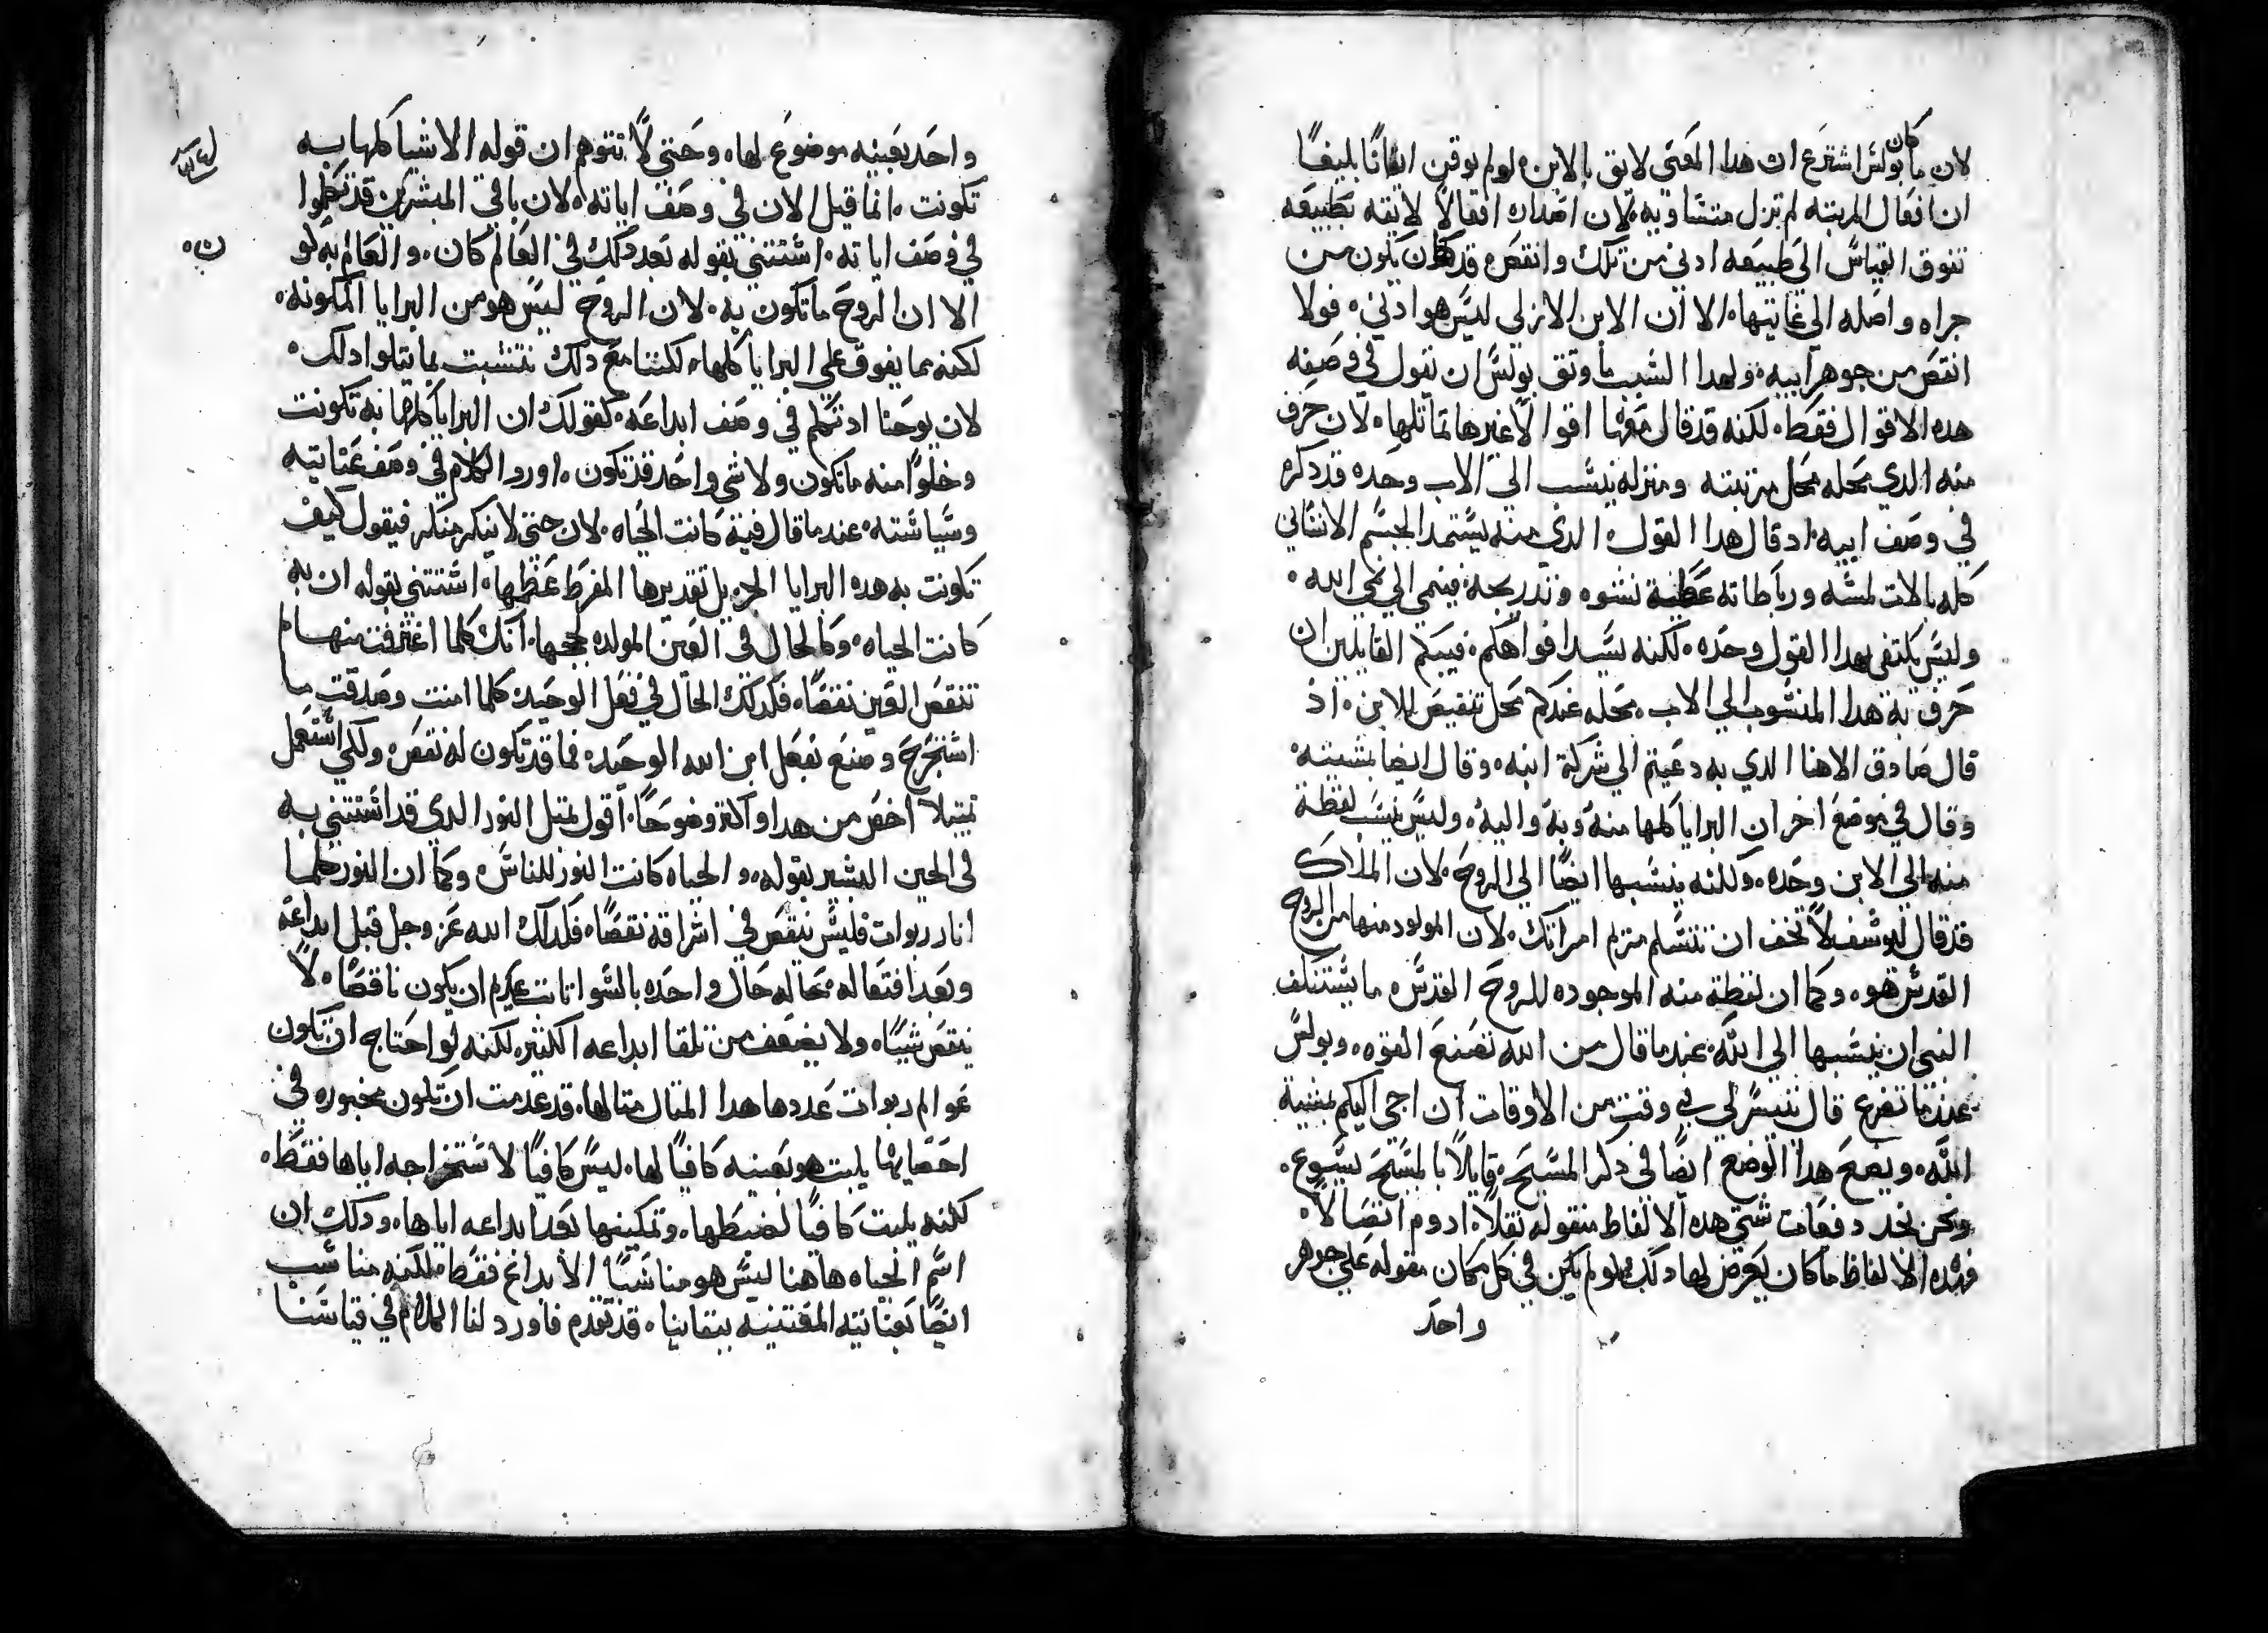 لان ما كان بولس اشترع ان هدا المعنى لايق بالابن لو لم يوقن ايقانًا بليغًا
ان افعال المرتبه لم تزل متساويه لان اصدار افعالاً لايقه بطبيعه
تفوق القياس الي طبيعه ادني من تلك وانقص قد كان يكون من
جراه واصله الي غايتها الا ان الابن الازلي ليس هو ادني فولا
انقص من جوهر ابيه ولهدا السبب ما وتق بولس ان يقول في وصفه
هده الاقوال فقط لكنه قد قال معها اقوالاً غيرها تماتلها لان حرف
منه الدي محله محل مرتبته ومنزله ينسب الي الاب وحده قد دكره
في وصف ابيه اد قال هدا القول الدي منه يستمد الجسم الانساني
كله بالات لمسه ورباطاته عطية نشوه وتدريجه فينمي الي نمي الله
وليس يكتفي بهدا القول وحده لكنه يسد افواهكم فيبكم القايلين ان
حرف به هدا المنسوب الي الاب محله عندكم محل تنقيص للابن اد
قال صادق الاهنا الدي به دعيتم الي شركة ابنه وقال ايضا بمشيته
وقال في موضع اخر ان البرايا كلها منه وبه واليه وليس ينسب لفظة
منه الي الابن وحده ولكنه ينسبها ايضًا الي الروح لان الملاك
قد قال ليوسف لا تخف ان تتسلم مريم امراتك لان المولود منها من الروح
القدس هو وكما ان لفظة منه الموجوده للروح القدس ما يستنكف
النبي ان ينسبها الي الله عند ما قال من الله نصنع القوه وبولس
عند ما تضرع قال تتيسر لي في وقت من الاوقات ان اجي اليكم بمشية
الله ويصع هدا الوضع ايضًا في دكر المسيح قايلاً بالمسيح يسوع
ونحن نجد دفعات شتي هده الالفاظ منقوله نقلاً ادوم اتصالاً
فهده الالفاظ ما كان يعرض لها دلك لو لم يكن في كل مكان مقوله علي جوهر
واحد
واحد بعينه موضوع لها وحتي لا تتوهم ان قوله الاشيا كلها به
تكونت انما قيل الان في وصف اياته لان باقي المبشرين قد تكلموا
في وصف اياته استتني بقوله بعد دلك في العالم كان والعالم به كون
الا ان الروح ما تكون به لان الروح ليس هو من البرايا المكونه
لكنه مما يفوق علي البرايا كلها لكننا مع دلك نتشبت بما يتلوا دلك
لان يوحنا اد تكلم في وصف ابداعه كقولك ان البرايا كلها به تكونت
وخلوًا منه ما تكون ولا شي واحد قد تكون اورد الكلام في وصف عنايته
وسياسته عند ما قال فيه كانت الحياه لان حتي لا ينكر منكر فيقول كيف
تكونت به هده البرايا الجزيل تقديرها المفرط عظمها استتني بقوله ان به
كانت الحياه وكالحال في العين المولده لججها انك كلما اغترفت منها ما
تنقص العين نقصًا فكدلك الحال في فعل الوحيد كلما امنت وصدقت ما
استخرج وصنع بفعل ابن الله الوحيد فما قد تكون له نقص ولكي استعمل
تمتيلاً اخص من هدا واكتر وضوحًا اقول بمتل النور الدي قد استتني به
في الحين البشير بقوله والحياه كانت النور للناس وكما ان النور كلما
انار ربوات فليس ينقص في اشراقه نقصًا فكدلك الله عز وجل قبل ابداعه
وبعد افتعاله محاله حال واحده بالسوا تابت عديم ان يكون ناقصًا لا
ينقص شيًا ولا يضعف من تلقا ابداعه الكتير لكنه لو احتاج ان تكون
عوالم ربوات عددها هدا المتال متالها قد عدمت ان تكون محبوره في
احصايها يلبت هو بعينه كافيًا لها ليس كافيًا لاستخراجه اياها فقط
لكنه يلبت كافيًا لضبطها وتمكينها بعد ابداعه اياها ودلك ان
اسم الحياه هاهنا ليس هو مناسبًا الابداع فقط لكنه مناسب
ايضًا بعنايته المقتنيه ببقاينا قد تقدم فاورد لنا الكلام في قياسنا